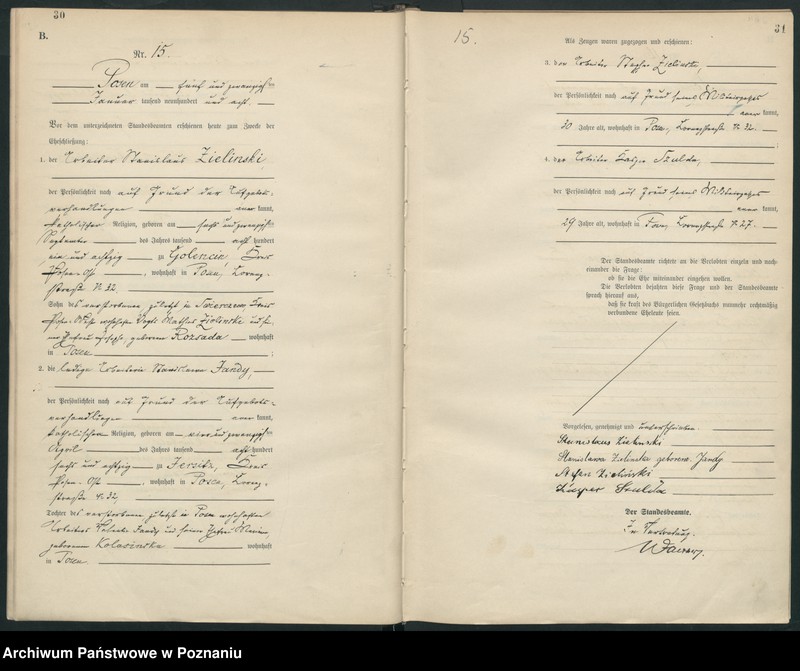 30
B.
Nr. 15.
Posen am fünf und zwanzigsten
Januar tausend neunhundert und acht.
Vor dem unterzeichneten Standesbeamten erschienen heute zum Zwecke der
Eheschließung:
1. der Arbeiter Stanislaus Zielinski,
der Persönlichkeit nach auf Grund der Aufgebots-
verhandlungen kannt,
katholischer Religion, geboren am sechs und zwanzigsten
September des Jahres tausend acht hundert
ein und achtzig zu Golencin, Kreis
Posen-Ost, wohnhaft in Posen, Lorenz-
straße N. 32
Sohn des verstorbenen zuletzt in Kreis
Posen-West wohnhaften Vogts Mathias Zielinski und
geborene Rozsada wohnhaft
in Posen;
2. die ledige Arbeiterin Stanislawa Jandy,
der Persönlichkeit nach auf Grund der Aufgebots-
verhandlungen kannt,
katholischer Religion, geboren am vier und zwanzigsten
April des Jahres tausend acht hundert
sechs und achtzig zu Jersitz, Kreis
Posen-Ost, wohnhaft in Posen, Lorenz-
straße N. 32
Tochter des verstorbenen zuletzt in Posen wohnhaften
Arbeiters Jandy und seiner Ehefrau
geborenen Kolasinska wohnhaft
in Posen.
31
15.
Als Zeugen waren zugezogen und erschienen:
3. der Arbeiter Stephan Zielinski,
der Persönlichkeit nach auf Grund seines Militärpasses
kannt,
30 Jahre alt, wohnhaft in Posen, Lorenzstraße N. 32
4. der Arbeiter Kasper Szulda,
der Persönlichkeit nach auf Grund seines Militärpasses
kannt,
29 Jahre alt, wohnhaft in Posen, Lorenzstraße N. 27.
Der Standesbeamte richtete an die Verlobten einzeln und nach-
einander die Frage:
ob sie die Ehe miteinander eingehen wollen.
Die Verlobten bejahten diese Frage und der Standesbeamte
sprach hierauf aus,
daß sie kraft des Bürgerlichen Gesetzbuchs nunmehr rechtmäßig
verbundene Eheleute seien.
Vorgelesen, genehmigt und unterschrieben.
Stanislaus Zielinski
Stanislawa Zielinska geborene Jandy
Stefan Zieliński
Kasper Szulda
Der Standesbeamte.
In Vertretung.
Archiwum Państwowe w Poznaniu